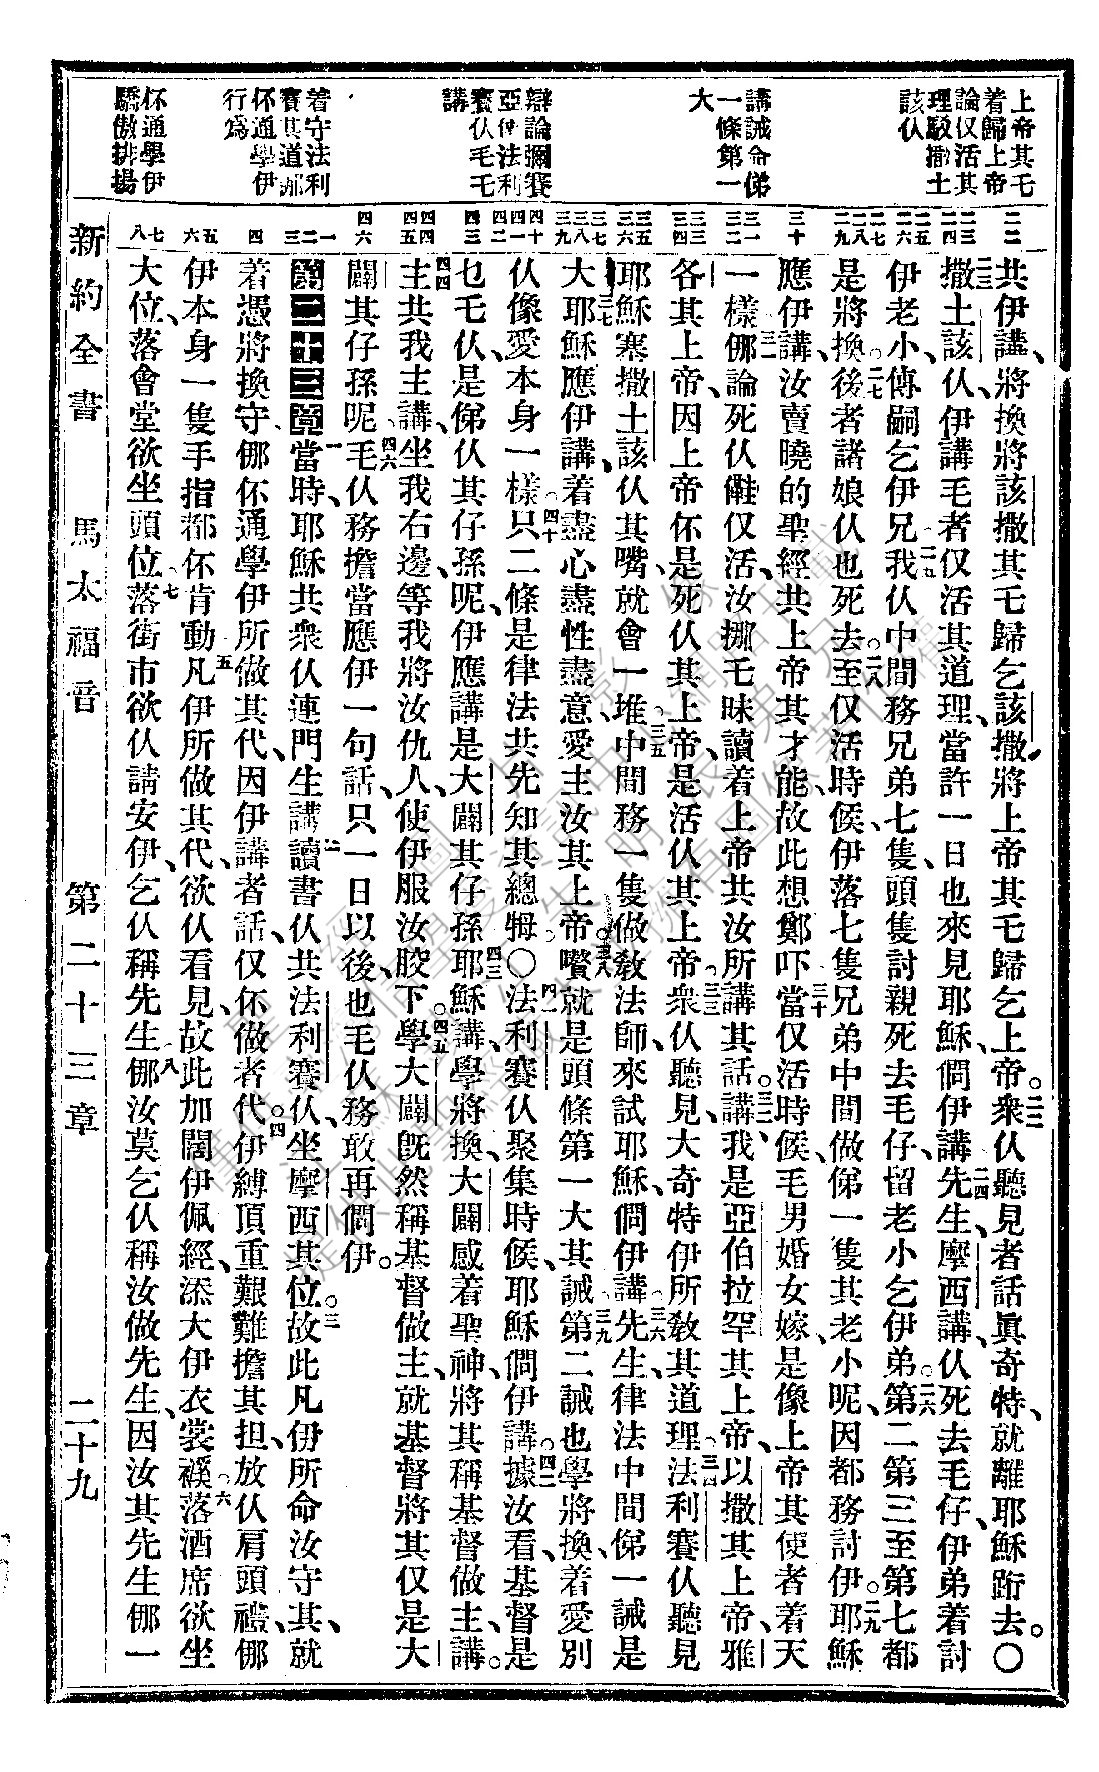 上帝其乇
着歸上帝
論仅活其
理駁撒土
該仈
講誡命俤
一條第一
大
辯論彌賽
亞使法利
賽仈毛乇
講
着守法利
賽其道㑚
伓通學伊
行為
伓通學伊
驕傲排揚
二二
二三
二四
二五
二六
二七
二八
二九
三十
三一
三二
三三
三四
三五
三六
三七
三八
三九
四十
四一
四二
四三
四四
四五
四六
一
二
三
四
五
六
七
八
共伊講、將換將該撒其乇歸乞該撒、將上帝其乇歸乞上帝。二二衆仈聽見者話眞奇特、就離耶穌跕去。〇
二三撒土該仈伊講毛者仅活其道理、當許一日也來見耶穌、問伊講、二四先生、摩西講、仈死去毛仔、伊弟着討
伊老小、傳嗣乞伊兄、二五我仈中間務兄弟七隻、頭隻討親死去毛仔、留老小乞伊弟。二六第二第三至第七都
是將換。二七後者諸娘仈也死去。二八至仅活時候、伊落七隻兄弟中間做俤一隻其老小呢、因都務討伊。二九耶穌
應伊講、汝賣曉的聖經共上帝其才能、故此想鄭吓、三十當仅活時候、毛男婚女嫁、是像上帝其使者着天
一樣。三一㑚論死仈儺仅活、汝挪毛昧讀着上帝共汝所講其話。三二講、我是亞伯拉罕其上帝、以撒其上帝、雅
各其上帝、因上帝伓是死仈其上帝、是活仈其上帝。三三衆仈聽見、大奇特伊所敎其道理。三四法利賽仈聽見
耶穌塞撒土該仈其嘴、就會一堆、三五中間務一隻做敎法師、來試耶穌、問伊講、三六先生、律法中間俤一誡是
大、三七耶穌應伊講、着盡心盡性盡意、愛主汝其上帝。三八嚽就是頭條第一大其誡。三九第二誡也學將換、着愛別
仈像愛本身一樣。四十只二條是律法共先知其總𡛤〇四一法利賽仈聚集時候、耶穌問伊講。四二據汝看、基督是
乜乇仈、是俤仈其仔孫呢、伊應講是大闢其仔孫。四三耶穌講、學將換、大闢感着聖神、將其稱基督做主、講。
四四主共我主講、坐我右邊、等我將汝仇人、使伊服汝骹下。四五學大闢旣然稱基督做主、就基督將其仅是大
闢其仔孫呢。四六毛仈務擔當應伊一句話、只一日以後也毛仈務敢再問伊。
第二十三章一當時、耶穌共衆仈連門生講、二讀書仈共法利賽仈、坐摩西其位。三故此凡伊所命汝守其、就
着憑將換守、㑚伓通學伊所做其代、因伊講者話、仅伓做者代。四伊縛頂重艱難擔其担、放仈肩頭禮、㑚
伊本身一隻手指都伓肯動。五凡伊所做其代、欲仈看見、故此加闊伊佩經、添大伊衣裳䙎。六落酒席欲坐
大位、落會堂欲坐頭位、七落街市欲仈請安伊、乞仈稱先生。八㑚汝莫乞仈稱汝做先生、因汝其先生㑚一
新約全書　馬太福音　第二十三章　二十九